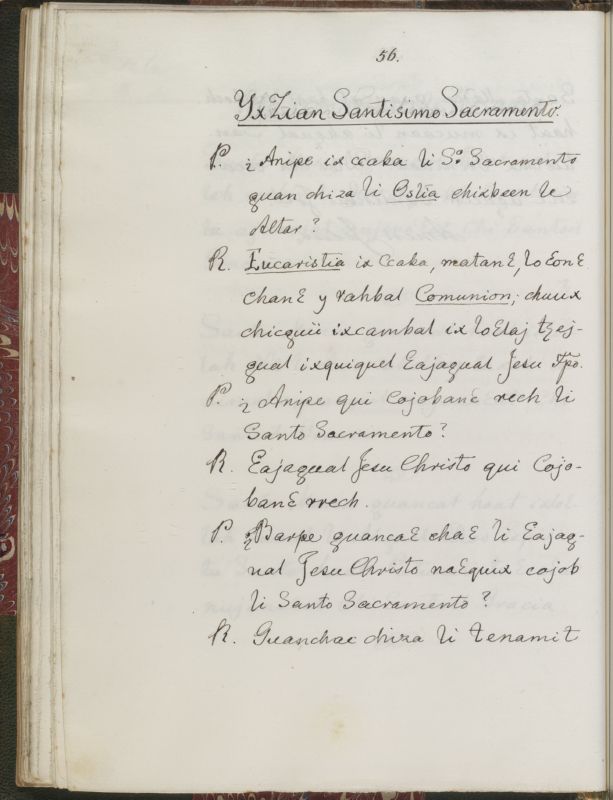 56.
Yx Zian Santisimo Sacramento.
P. ¿ Anipe ix ccaba li Sº Sacramento
quan chiza li Ostia chixbeen le
Altar?
R. Eucaristia ix ccaba, matanƐ, loƐonƐ
chanƐ y rahbal Comunion; chuux
chicquii ixcambal ix loƐlaj tzej-
qual ixquiquel Ɛajagual Jesu Xpo.
P. ¿ Anipe qui CojobanƐ rech li
Santo Sacramento?
R. Ɛajagual Jesu Christo qui Cojo-
banƐ rrech.
P. ¿ Barpe quancaƐ chaƐ li Ɛajag-
ual Jesu Christo naƐquix cojob
li Santo Sacramento?
R. Guanchae chiza li tenamit